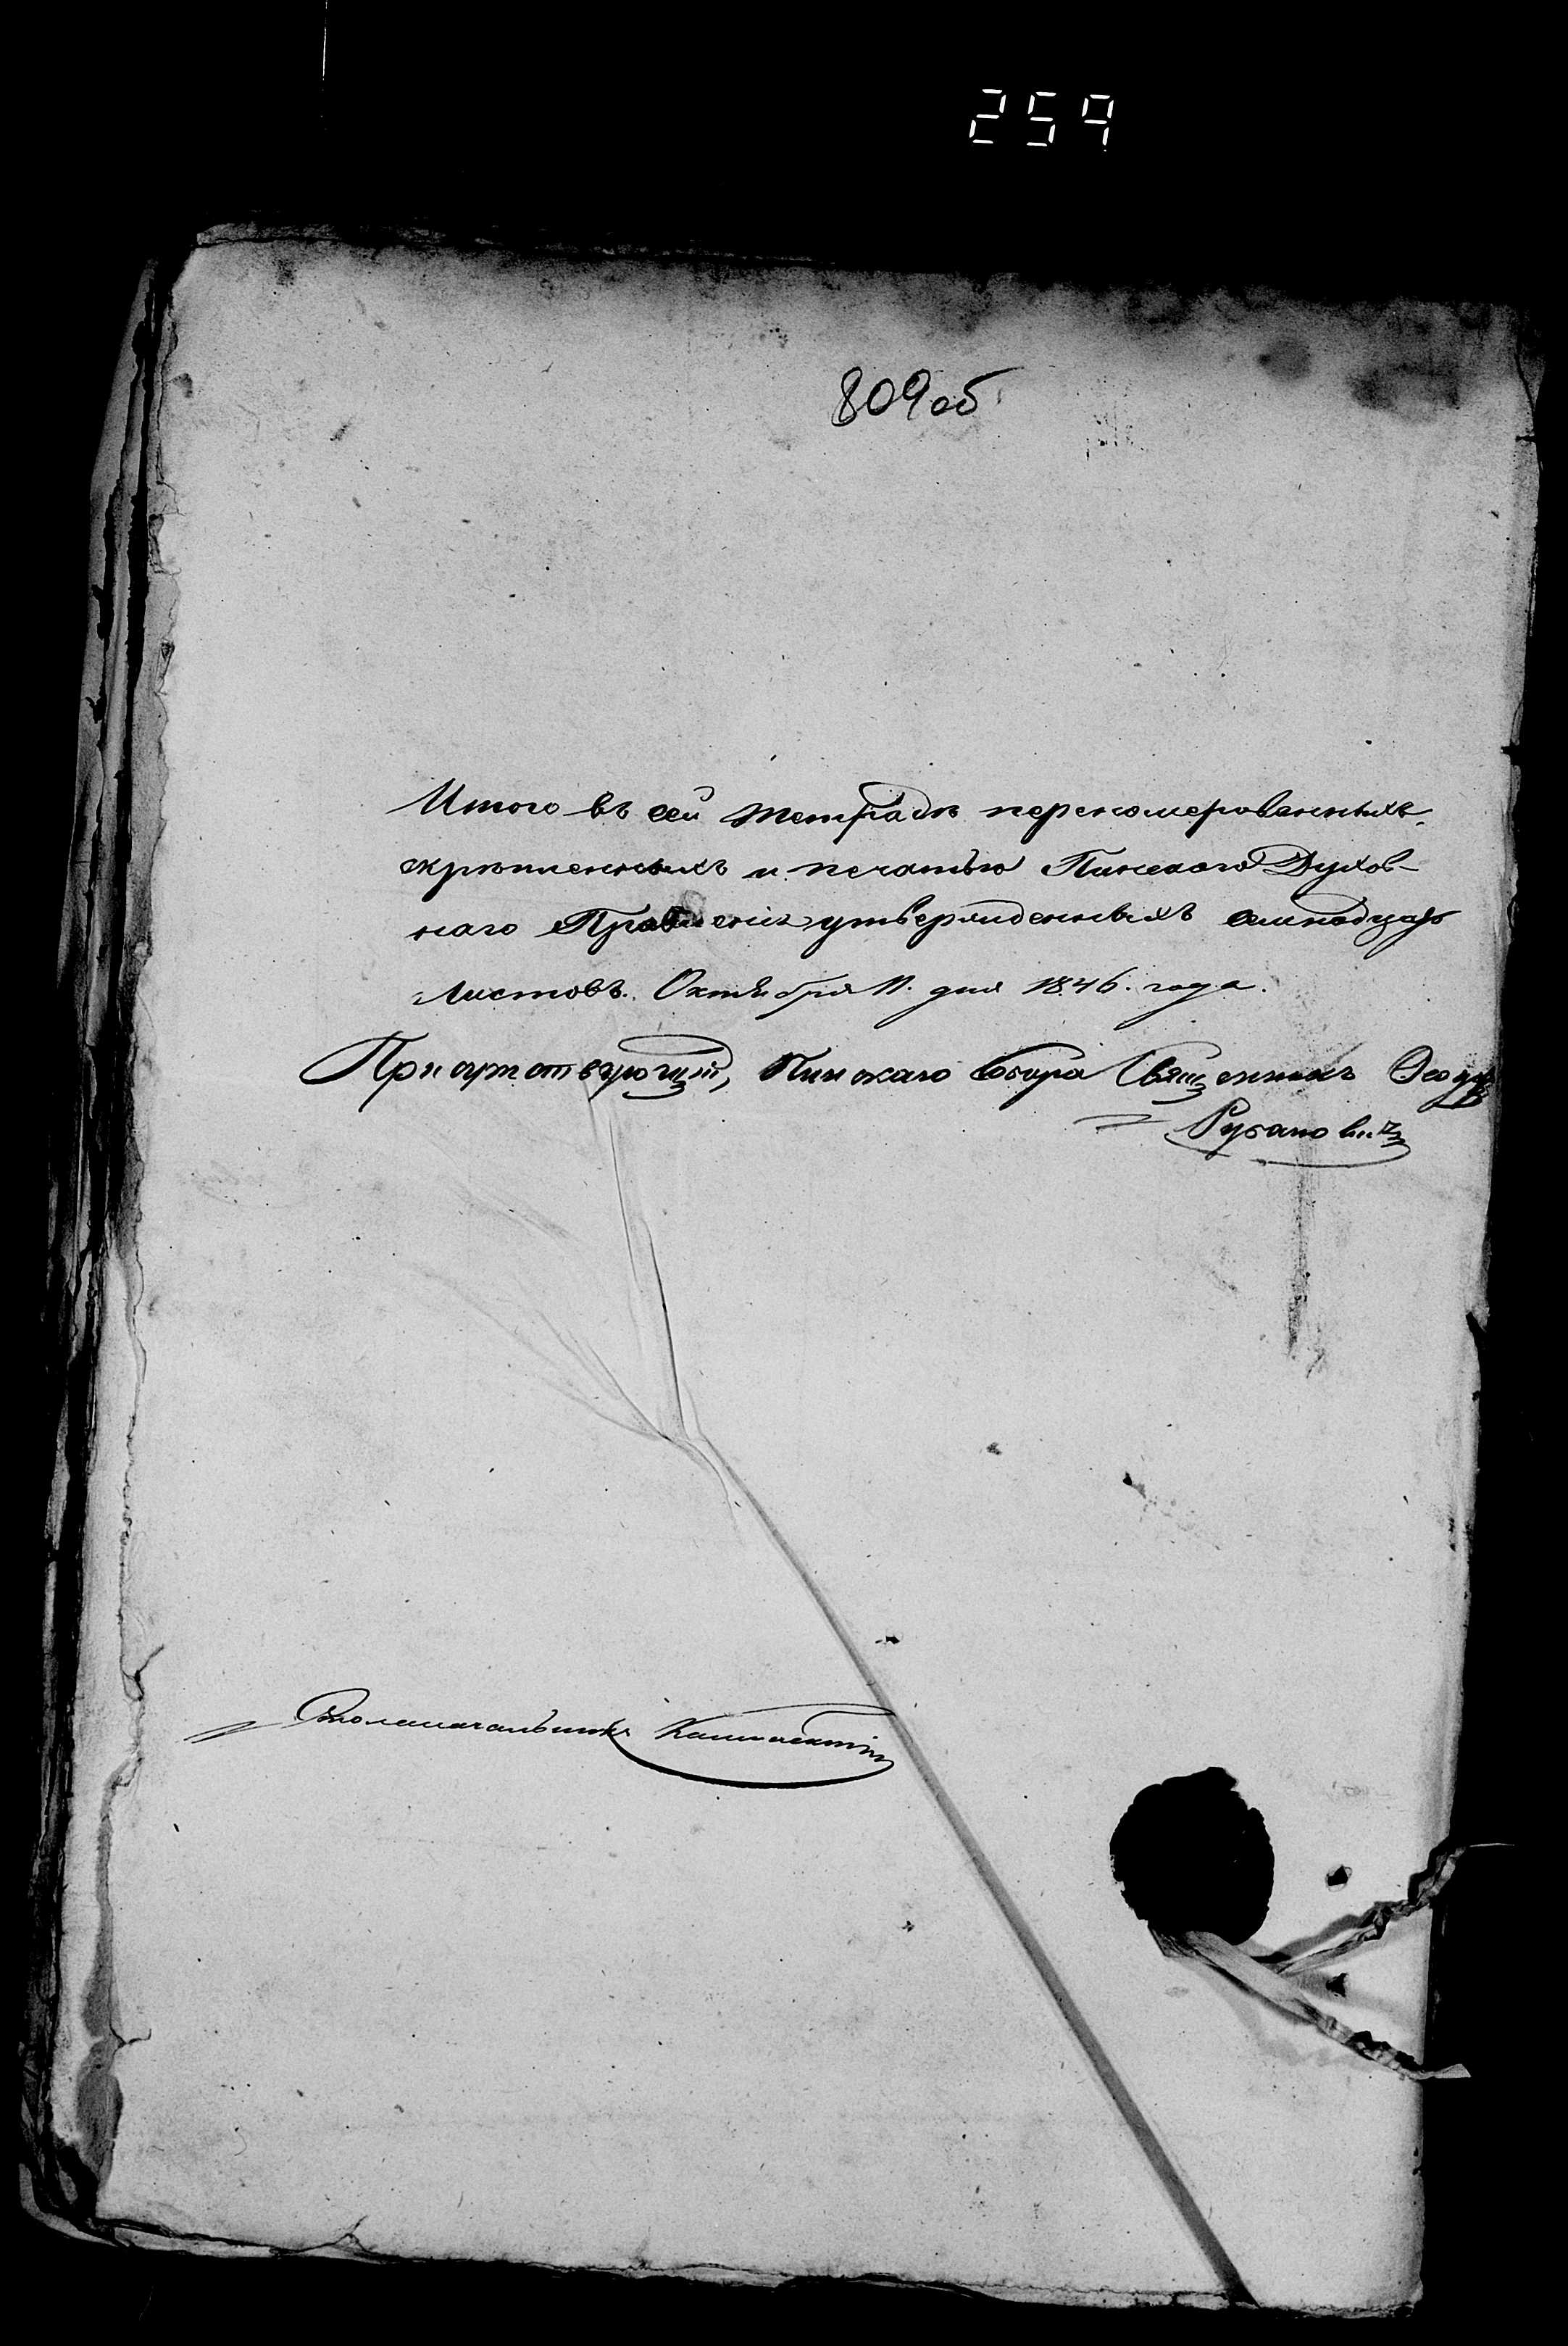 259
809 об
Итого въ сей тетрадѣ переномерованныхъ,
скрѣпленныхъ и печатью Пинскаго Духов-
наго Правленія утвержденныхъ
Листовъ. Октября 11. дня 1846. года.
Присутствующій, Пинскаго Собора Священникъ
Рубановичъ
Столоначальникъ